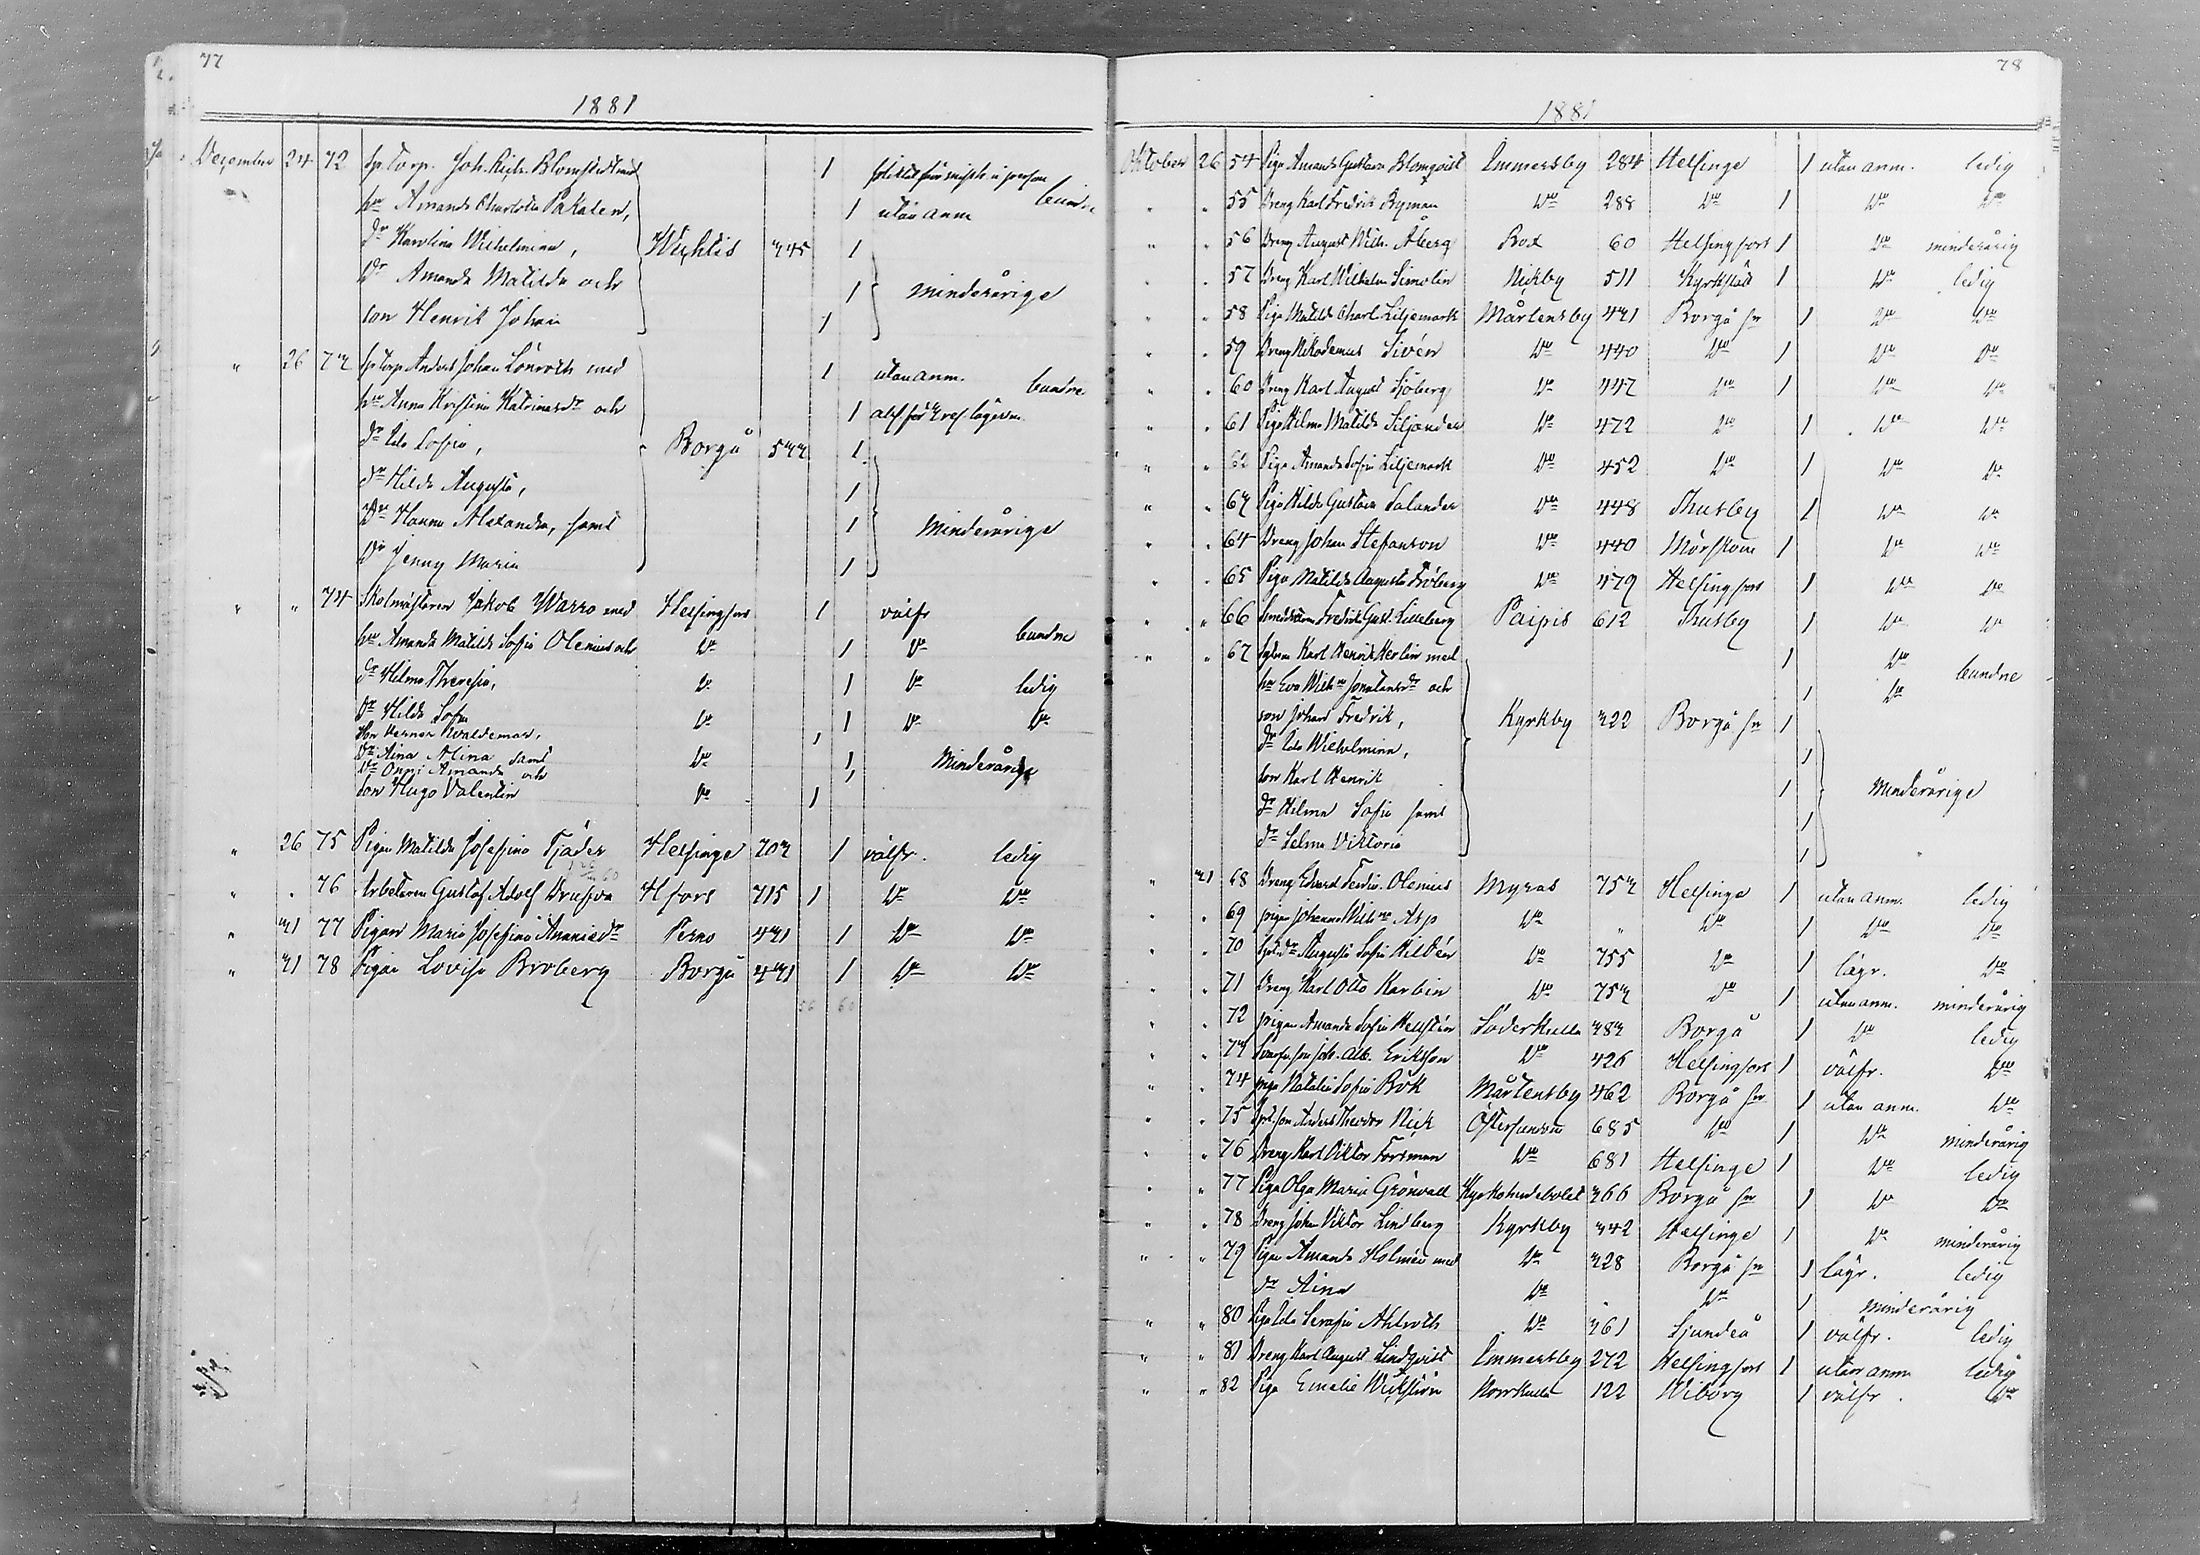 77
1881
December 24 72 Sp. Torp. Joh. Blomstedt med 1
hu Amanda Charlotta Pakalen, 1 utan anm bundne
dr Karolina Wilhelmina, Wichtis 345 1
Dr Amanda Matilda och 1 minderårige
son Henrik Johan 1
" 26 73 Anders Johan Lönroth med 1 utan anm. bundne
hu Anna Kristina och 1
dr Ida Sofia, Borgå 533 1
dr Hilda Augusta, 1
Dr Hanna Alexandra, samt 1 minderårige
Dr Jenny Maria 1
" " 74 Skolmästaren Jakob Warro med Helsingfors 1 välfr
hu Amanda Matilda Sofia Olenius och Do 1 Do bundne
dr Hilma Theresia, Do 1 Do ledig
Dr Hilda Sofia Do 1 Do Do
son Verner Waldemar, 1
Dr Aina Alina samt Do 1 Minderårige
Dr Onni Amanda och
son Hugo Valentin Do 1
" 26 75 Pigan Matilda Josefina Tjäder Helsinge 703 1 välfr. ledig
" " 76 Arbetaren Gustaf Adolf Drufva Hfors 715 1 Do Do
" 31 77 Pigan Maria Josefina Ananiasdr Perno 431 1 Do Do
" 31 78 Pigan Lovisa Broberg Borgå 431 1 Do Do
56 60
78
1881
Oktober 26 54 Piga Amanda Gustava Blomqvist Immersby 284 Helsinge 1 utan anm. ledig
" " 55 Dreng Karl Fredrik Nyman Do 288 Do 1 Do Do
" " 56 Dreng August Wilh. Åberg Box 60 Helsingfors 1 Do minderårig
" " 57 Dreng Karl Wilhelm Simolin Nickby 511 Kyrkslätt 1 Do ledig
" " 58 Piga Matilda Charl. Liljemark Mårtensby 431 Borgå sn 1 Do Do
" " 59 Dreng Nikodemus Sivén Do 440 Do 1 Do Do
" " 60 Dreng Karl August Sjöberg Do 447 Do 1 Do Do
" " 61 Piga Hilma Matilda Siljander Do 472 Do 1 Do Do
" " 62 Piga Amanda Sofia Liljemark Do 452 Do 1 Do Do
" " 63 Piga Hilda Gustava Salander Do 448 Thusby 1 Do Do
" " 64 Dreng Johan Stefanson Do 440 Mörskom 1 Do Do
" " 65 Piga Matilda Augusta Fröberg Do 479 Helsingfors 1 Do Do
" " 66 Fredrik Gust. Lilleberg Paipis 612 Thusby 1 Do Do
" " 67 Karl Henrik Herlin med 1 Do bundne
hu Eva Wilhna Jonatansdr och 1 Do
son Johan Fredrik, Kyrkby 322 Borgå sn 1
dr Ida Wilhelmina, 1
son Karl Henrik 1 Minderårige
dr Hilma Sofia samt 1
dr Selma Viktoria 1
" 31 68 Dreng Edvard Ferdin. Olenius Myras 753 Helsinge 1 utan anm. ledig
" " 69 pigan Johanna Wilhna Asp Do " Do 1 Do Do
" " 70 Augusta Sofia Do 755 Do 1 lägr. Do
" " 71 Dreng Karl Otto Karbin Do 753 Do 1 utan anm. minderårig
" " 72 pigan Amanda Sofia Hellstén Söderkulla 383 Borgå 1 Do ledig
" " 73 Joh. Alb. Eriksson Do 426 Helsingfors 1 välfr. Do
" " 74 piga Natalia Sofia Bök Mårtensby 462 Borgå sn 1 utan anm. Do
" " 75 son Anders Theodor Nick Östersundom 685 Do 1 Do minderårig
" " 76 Dreng Karl Viktor Forsman Do 681 Helsinge 1 Do ledig
" " 77 Piga Olga Maria Grönvall Kyrkoherdebolet 366 Borgå sn 1 Do Do
" " 78 Dreng Johan Viktor Lindberg Kyrkby 342 Helsinge 1 Do minderårig
" " 79 Pigan Amanda Holmén med Do 328 Borgå sn 1 lägr. ledig
dr Aina Do " Do 1 minderårig
" " 80 Piga Ida Serafia Ahlroth Do 361 Sjundeå 1 välfr. ledig
" " 81 Dreng Karl August Lindqvist Immersby 272 Helsingfors 1 utan anm ledig
" " 82 Piga Emelie Wickström Norrkulla 122 Wiborg 1 välfr. Do